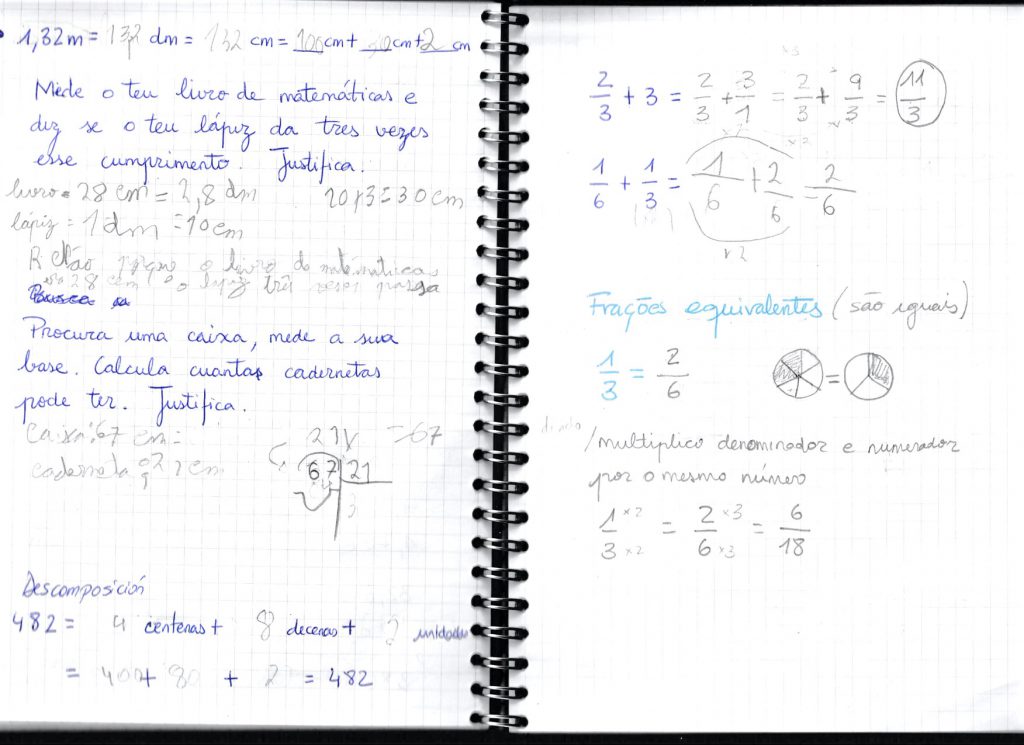 1,32m = 132 dm = 132 cm = 100 cm + 30 cm + 2 cm
Mede o teu livro de matemáticas e
diz se o teu lápiz da tres vezes
esse cumprimento. Justifica.
livro = 28 cm = 2,8 dm 10x3=30 cm
lápiz = 1 dm = 10 cm
o livro de matemáticas
28 cm e o lapiz três vezes passa
Procura uma caixa, mede a sua
base. Calcula cuantas cadernetas
pode ter. Justifica.
Caixa: 67 cm = 21x = 67
caderneta: 21 cm 67 21
Descomposición
482 = 4 centenas + 8 decenas + 2 unidades
= 400 + 80 + 2 = 482
2/3 + 3 = 2/3 + 3/1 = 2/3 + 9/3 = 11/3
x2
1/6 + 1/3 = 1/6 + 2/6 = 2/6
x2
Frações equivalentes (são iguais)
1/3 = 2/6 =
/multiplico denominador e numerador
por o mesmo número
1 x2 / 3 x2 = 2 x3 / 6 x3 = 6/18